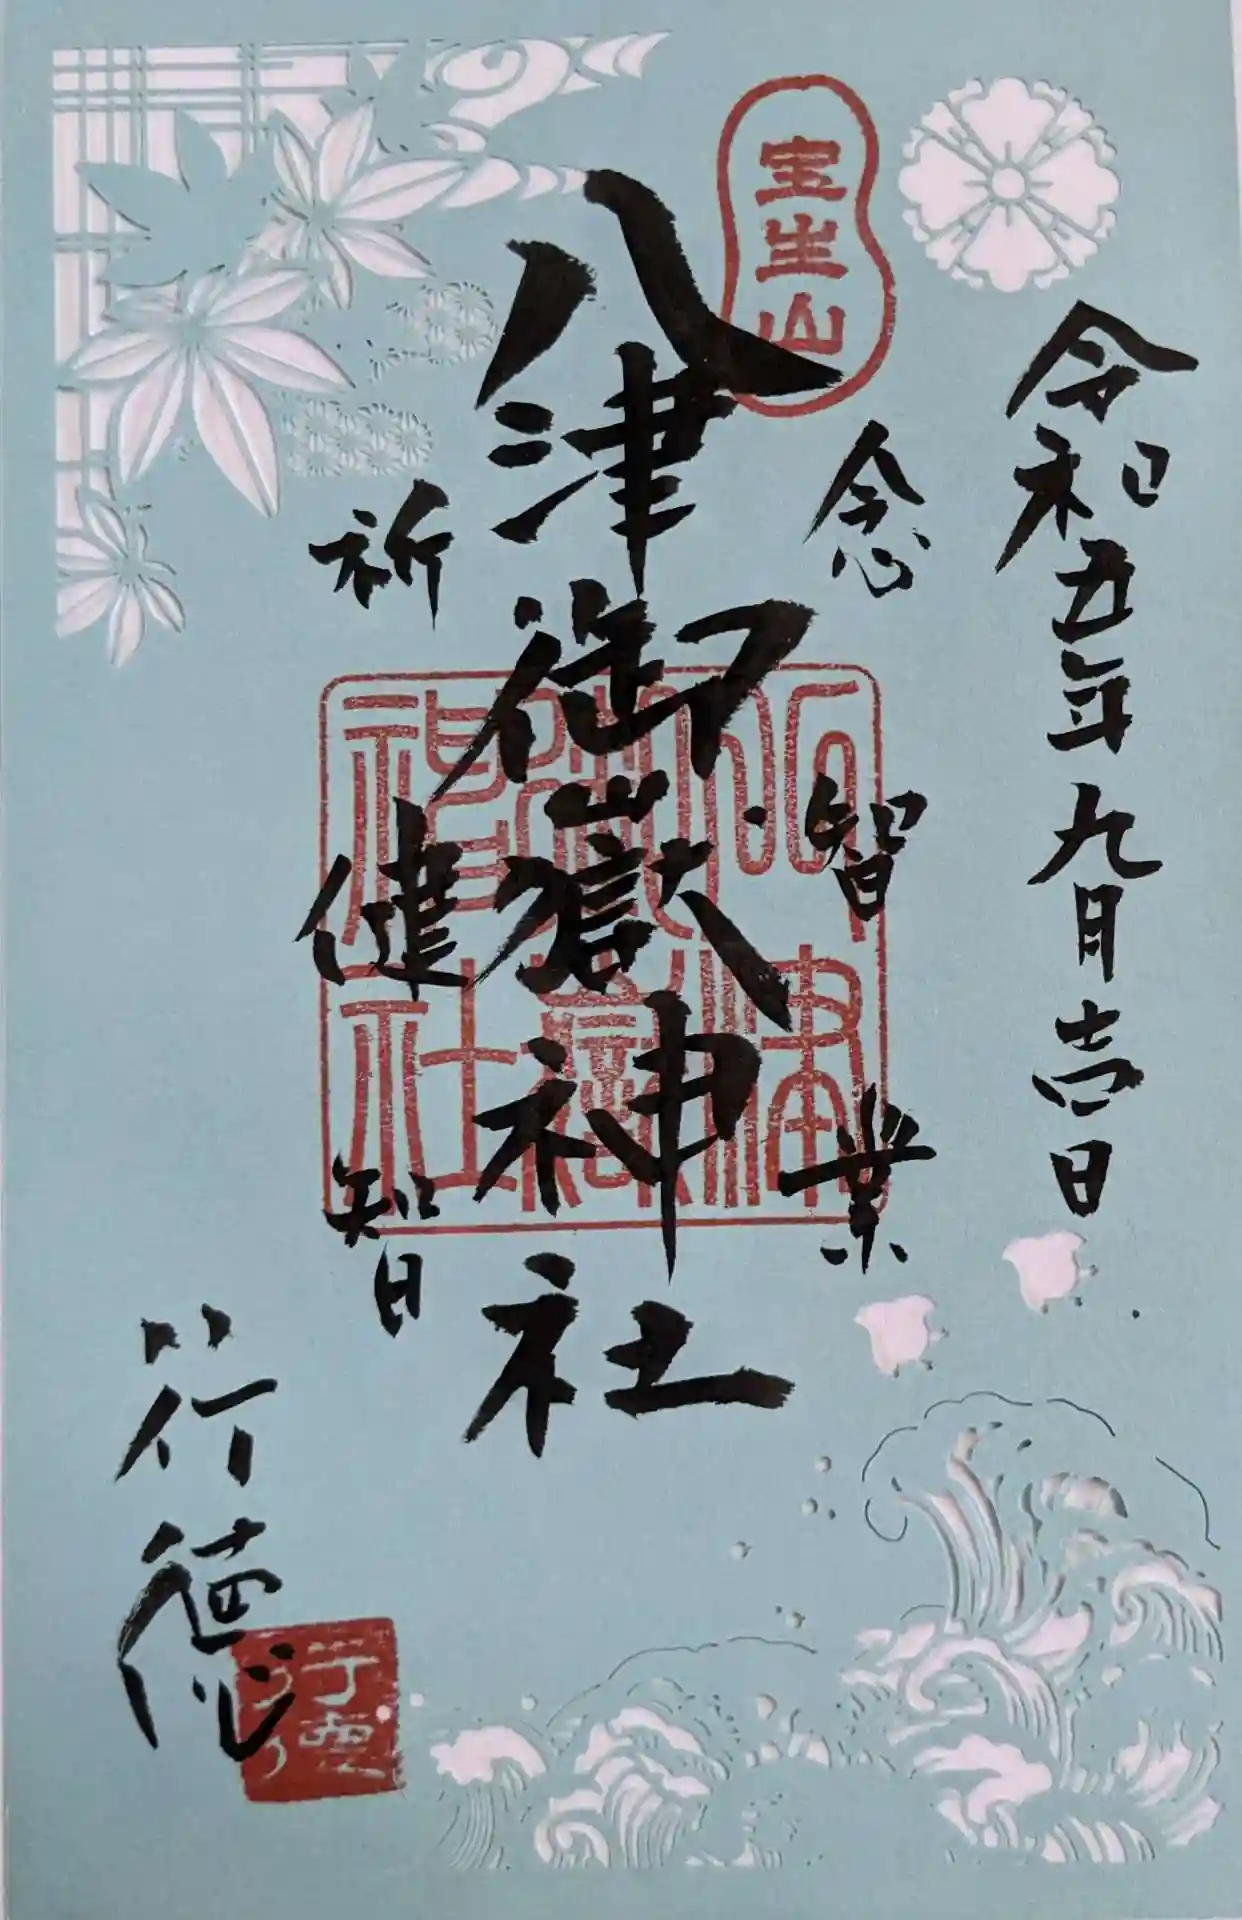 令和五年九月壱日
宝生山
念 智 業
八津御嶽神社
八津御嶽神社
祈 健 智
行徳